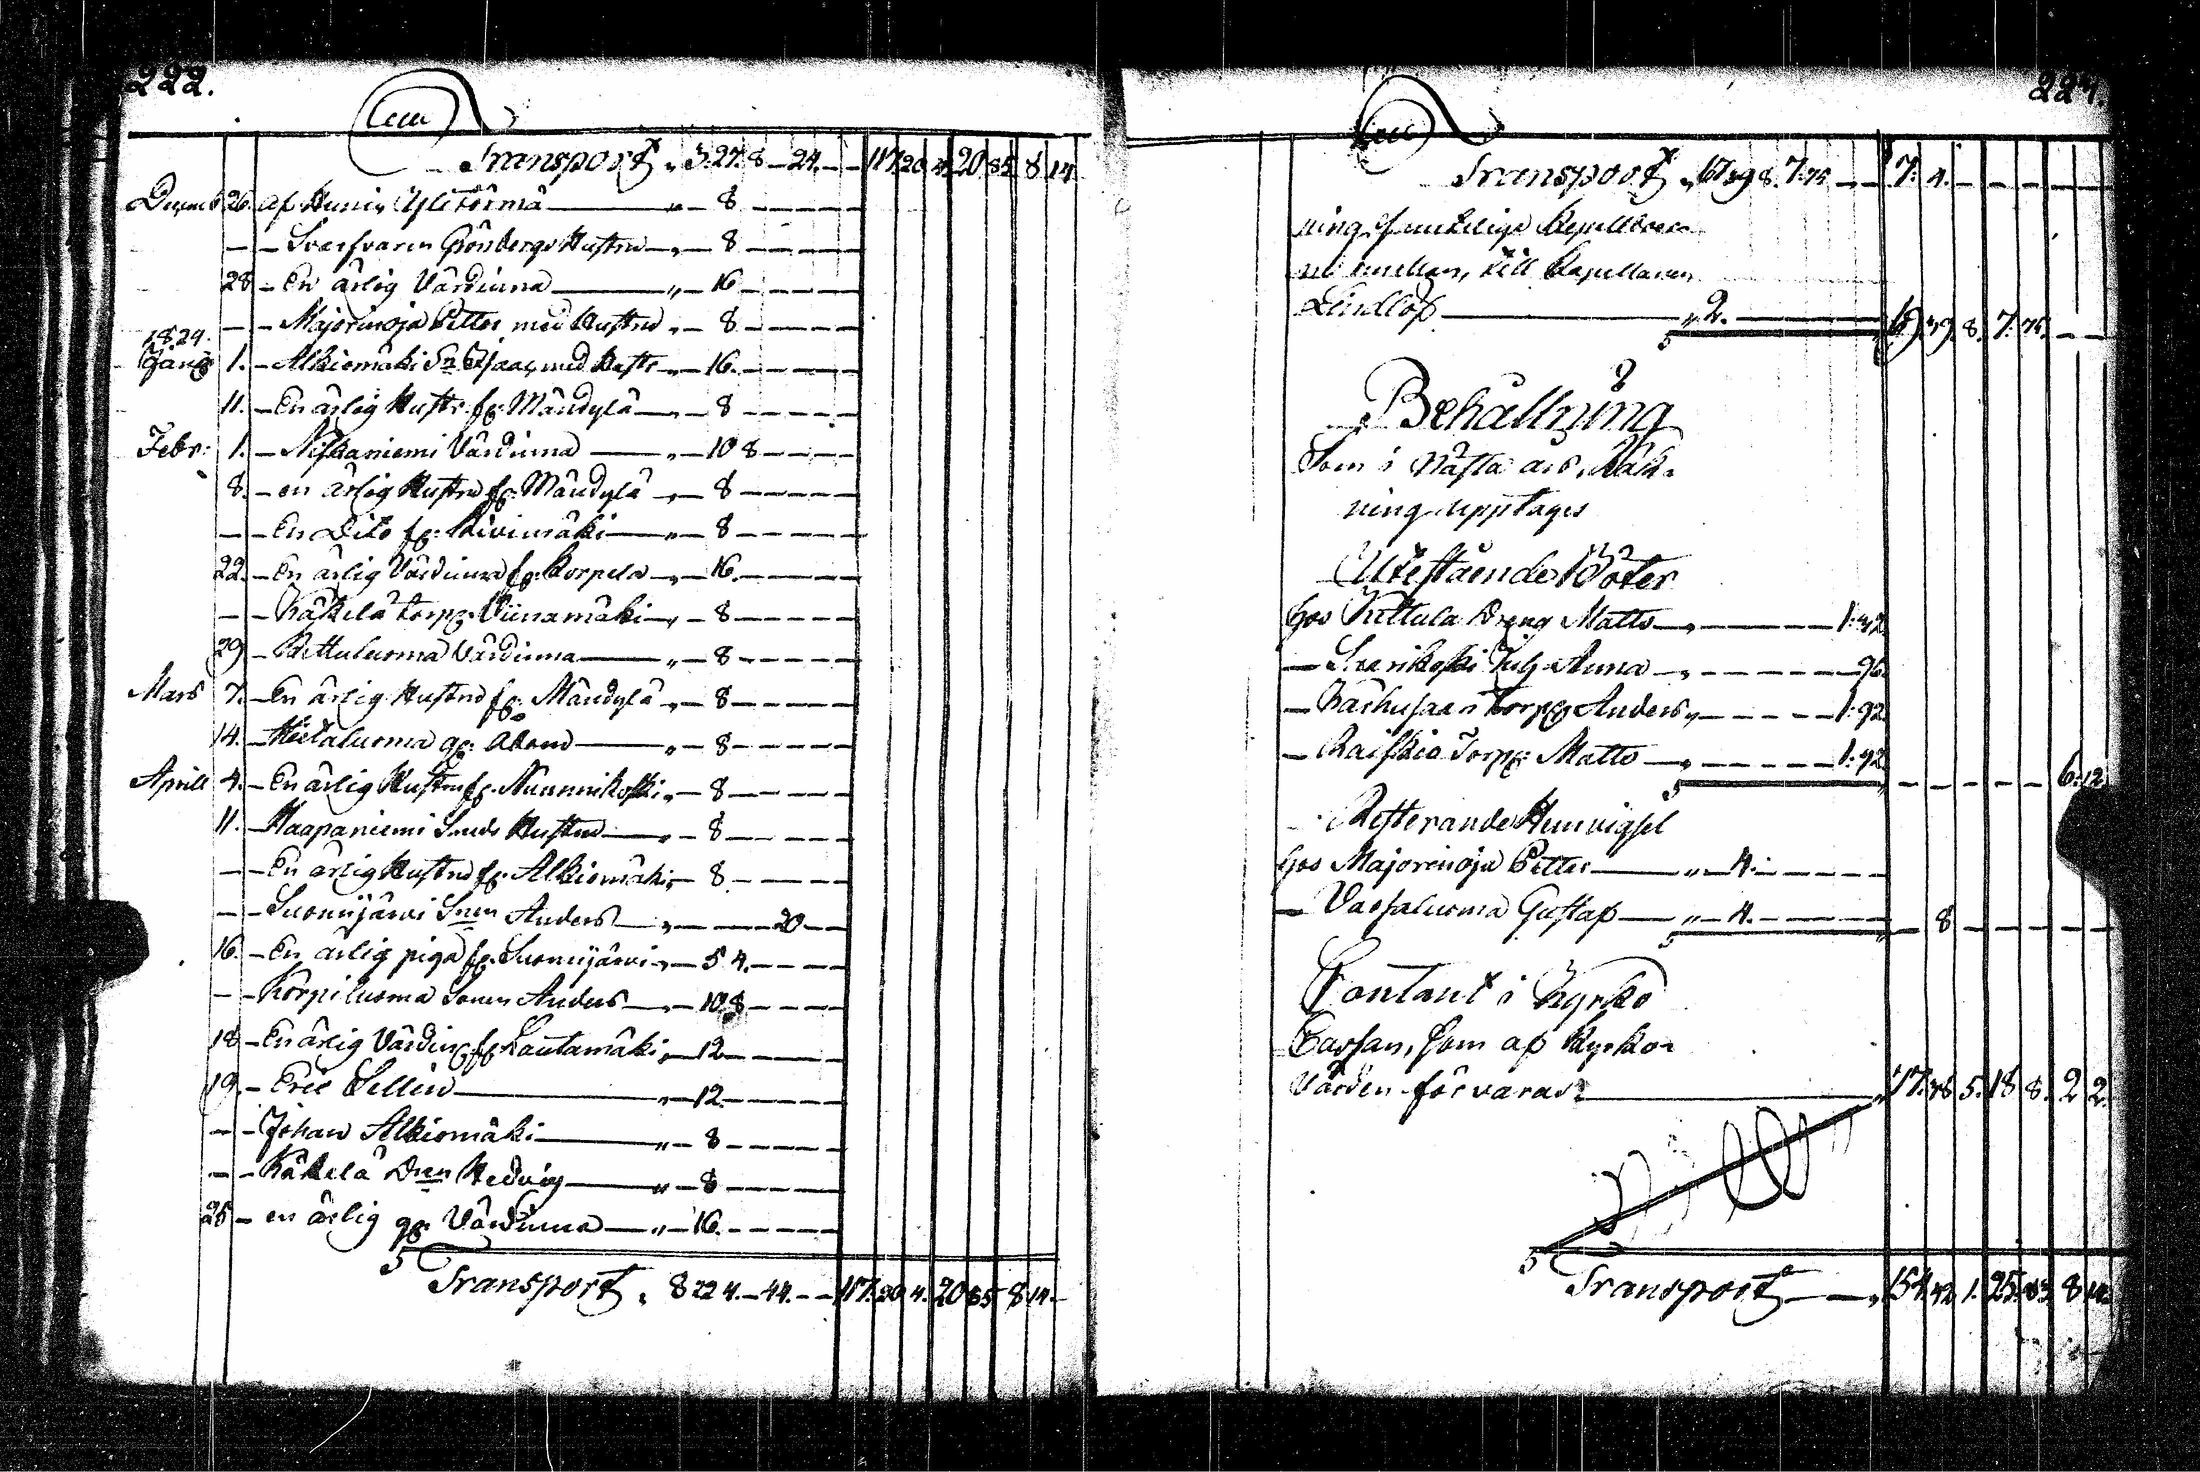 222.
Transport „ 5. 27. 8 – 24. – – 117. 20. 4. 20. 85. 8. 14.
Decemb 26. af Hunin Ylitörmä „ – 8
– – Svarfvaren Grönbergs Hustru „ – 8
28 – En ärlig Värdinna „ – 16
– – Majorinoja Petter med Hustru „ – 8
1824.
Janu 1. – Alkiomäki Sn Isaac med Hustr „ – 16.
11. – En ärlig Hustr. fr. Mändylä „ – 8
Febr: 1. – Niskaniemi Värdinna „ – 10 8
8. – en ärlig Hustru fr. Mändylä „ – 8
– – En Dito fr. Kivimäki „ – 8
22. – En ärlig Värdinna fr. Korpela „ – 16.
– – Käkelä torp. Viinamäki „ – 8
29 – Pettuluoma Värdinna „ – 8
Mars 7. – En ärlig Hustru fr. Mändylä „ – 8
14. – Hietaluoma „ – 8
Aprill 4. – En ärlig Hustru fr. Nummikoski „ – 8
11. – Haapaniemi Hustru „ – 8
– – En ärlig Hustru fr. Alkiomäki – 8
– – Suomijärvi Snen Anders „ 20
16. – En ärlig piga fr. Suomijärvi „ – 5 4.
– – Korpiluoma Sonen Anders „ – 10 8
18 – En ärlig Värdin fr. Lautamäki „ – 12
19. – Eric Sellin „ – 12
– – Johan Alkiomäki „ – 8
– – Käkelä Dren Hedvig „ – 8
25 – en ärlig gg. Värdinna „ – 16.
Transport „ 8 22 4. – 44. – – 117. 20. 4. 20. 85. 8. 14.
Transport „ 67. 39 8. 7. 75 – – 7. 4.
till Kapellanen
Lindlöf „ 2. 67. 39. 8. 7. 75.
Behållning
Som i nästa års Räk-
ning upptages
Utestående Böter
hos Kittula Dreng Matts „ 1: 32
– Anna „ 96.
– Torp Anders „ 1: 92
– Torp: Matts „ 1: 92 6: 12
Resterande Hunvigsel
hos Majorinoja Petter „ – 4.
– Vasaluoma Gustaf „ – 4. 8
Contant i Kyrko
Cassan, som af Kyrko-
Värden förvaras „ 77. 38 5. 18 8. 2 2.
Transport „ 154. 42 1. 25. 83. 8 14.